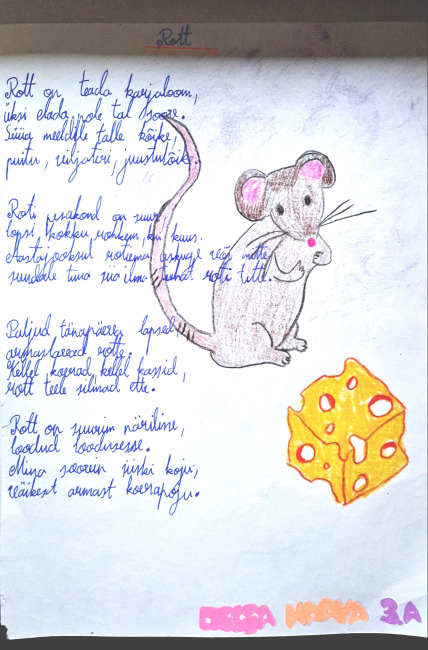 Rott
Rott on teada karjaloom,
üksi elada pole tal soov.
Süüa meeldib talle kõike,
puitu, viljateri, juustulõike.
Roti pesakond on suur
lapsi kokku rohkem, kui kuus.
Aastajooksul rotiema uskuge või mitte
suudab tuua siia ilma tuhat rotti titte.
Paljud tänapäeva lapsed,
armastavad rotte.
Kellel koerad, kellel kassid,
rott teele silmad ette.
Rott on suurim näriline,
loodud loodusesse.
Mina soovin siiski koju,
väikest armast koerapoju.
3.A